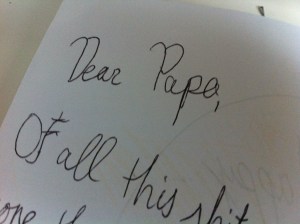 Dear Papa,
Of all this shit
one